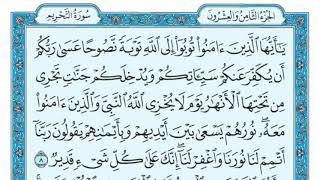 الجُزْءُ الثَّامِنُ وَالعِشْرُونَ سُورَةُ التَّحْرِيمِ
يَـٰٓأَيُّهَا ٱلَّذِينَ ءَامَنُوا۟ تُوبُوٓا۟ إِلَى ٱللَّهِ تَوْبَةً نَّصُوحًا عَسَىٰ رَبُّكُمْ
أَن يُكَفِّرَ عَنكُمْ سَيِّـَٔاتِكُمْ وَيُدْخِلَكُمْ جَنَّـٰتٍ تَجْرِى
مِن تَحْتِهَا ٱلْأَنْهَـٰرُ يَوْمَ لَا يُخْزِى ٱللَّهُ ٱلنَّبِىَّ وَٱلَّذِينَ ءَامَنُوا۟
مَعَهُۥ ۖ نُورُهُمْ يَسْعَىٰ بَيْنَ أَيْدِيهِمْ وَبِأَيْمَـٰنِهِمْ يَقُولُونَ رَبَّنَآ
أَتْمِمْ لَنَا نُورَنَا وَٱغْفِرْ لَنَآ ۖ إِنَّكَ عَلَىٰ كُلِّ شَىْءٍ قَدِيرٌ ٨